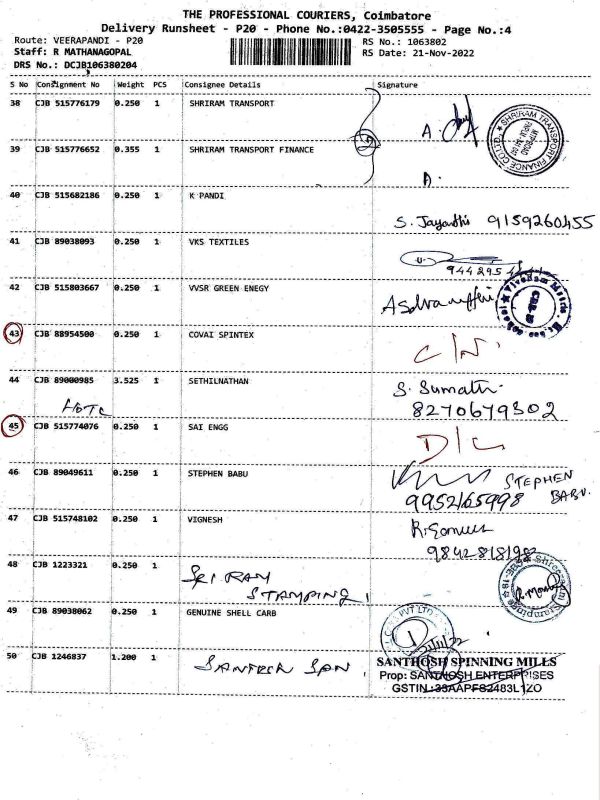 THE PROFESSIONAL COURIERS, Coimbatore
Delivery Runsheet - P20 - Phone No.:0422-3505555 - Page No.:4
Route: VEERAPANDI - P20
RS No.: 1063802
Staff: R MATHANAGOPAL
RS Date: 21-Nov-2022
DRS No.: DCJB106380204
S No Consignment No Weight PCS Consignee Details Signature
38 CJB 515776179 0.250 1 SHRIRAM TRANSPORT A.
SHRIRAM TRANSPORT FINANCE CO.LTD
39 CJB 515776652 0.355 1 SHRIRAM TRANSPORT FINANCE
A.
40 CJB 515682186 0.250 1 K PANDI
S. Jayanthi 9159260455
41 CJB 89038093 0.250 1 VKS TEXTILES
944295
42 CJB 515803667 0.250 1 VVSR GREEN ENEGY
43 CJB 88954500 0.250 1 COVAI SPINTEX
C/N.
44 CJB 89000985 3.525 1 SETHILNATHAN S. Sumathi
8270679302
45 CJB 515774076 0.250 1 SAI ENGG
D/L
46 CJB 89049611 0.250 1 STEPHEN BABU STEPHEN BABU.
9952165998
47 CJB 515748102 0.250 1 VIGNESH
9842818198
48 CJB 1223321 0.250 1 SRI RAM
STAMPING
49 CJB 89038062 0.250 1 GENUINE SHELL CARB
50 CJB 1246837 1.200 1
SANTHOSH SPINNING MILLS
Prop: SANTHOSH ENTERPRISES
GSTIN :33AAPFS2483L1ZO